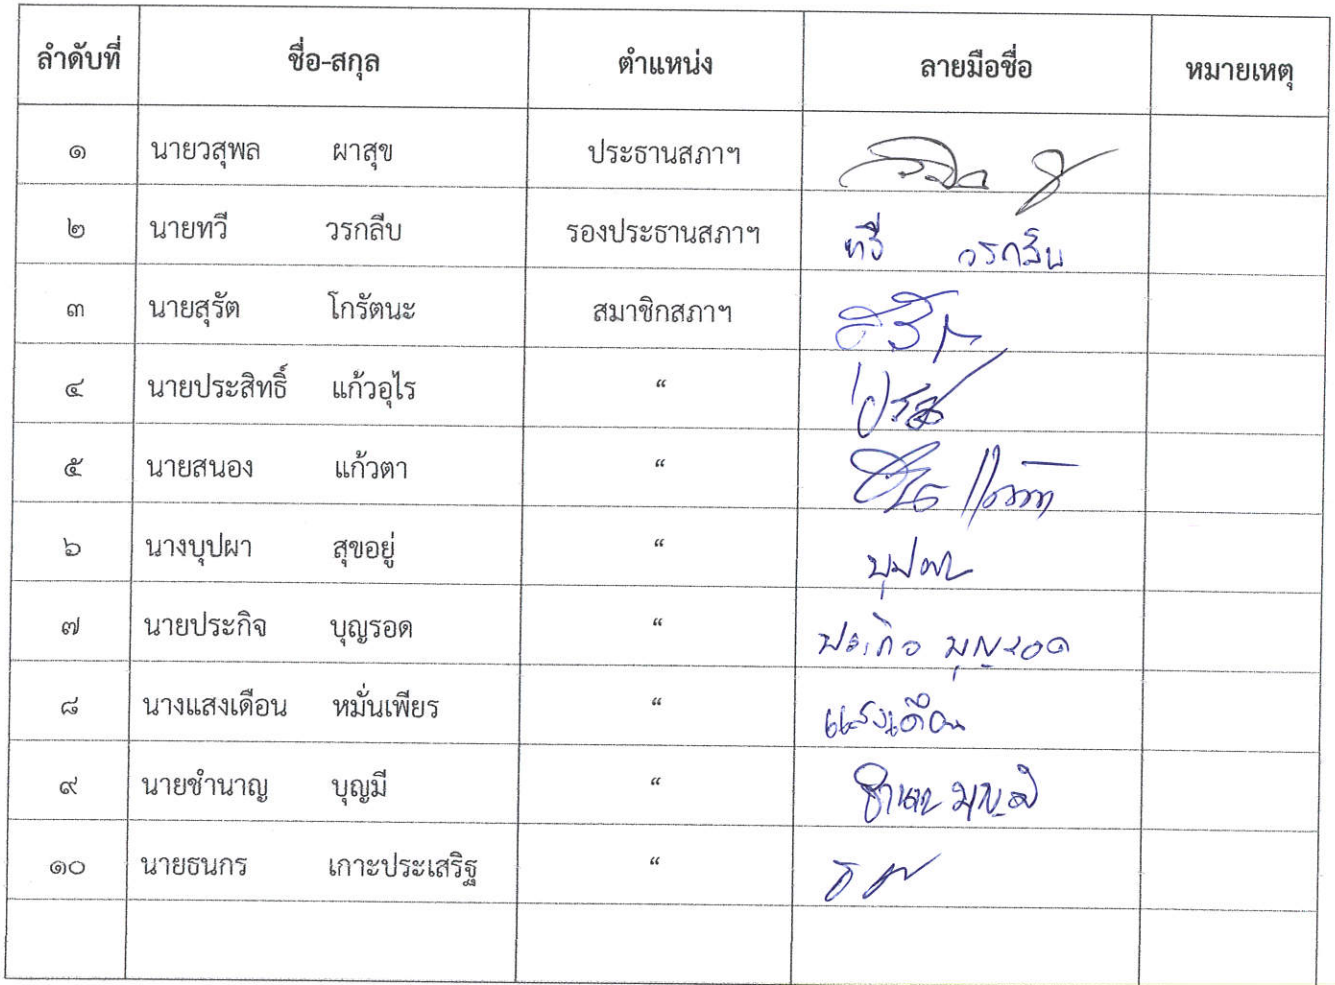 ลำดับที่ ชื่อ-สกุล ตำแหน่ง ลายมือชื่อ หมายเหตุ
๑ นายวสุพล ผาสุข ประธานสภาฯ
๒ นายทวี วรกลีบ รองประธานสภาฯ ทวี วรกลีบ
๓ นายสุรัต โกรัตนะ สมาชิกสภาฯ
๔ นายประสิทธิ์ แก้วอุไร “
๕ นายสนอง แก้วตา “
๖ นางบุปผา สุขอยู่ “ บุปผา
๗ นายประกิจ บุญรอด “ ประกิจ บุญรอด
๘ นางแสงเดือน หมั่นเพียร “ แสงเดือน
๙ นายชำนาญ บุญมี “ ชำนาญ บุญมี
๑๐ นายธนกร เกาะประเสริฐ “